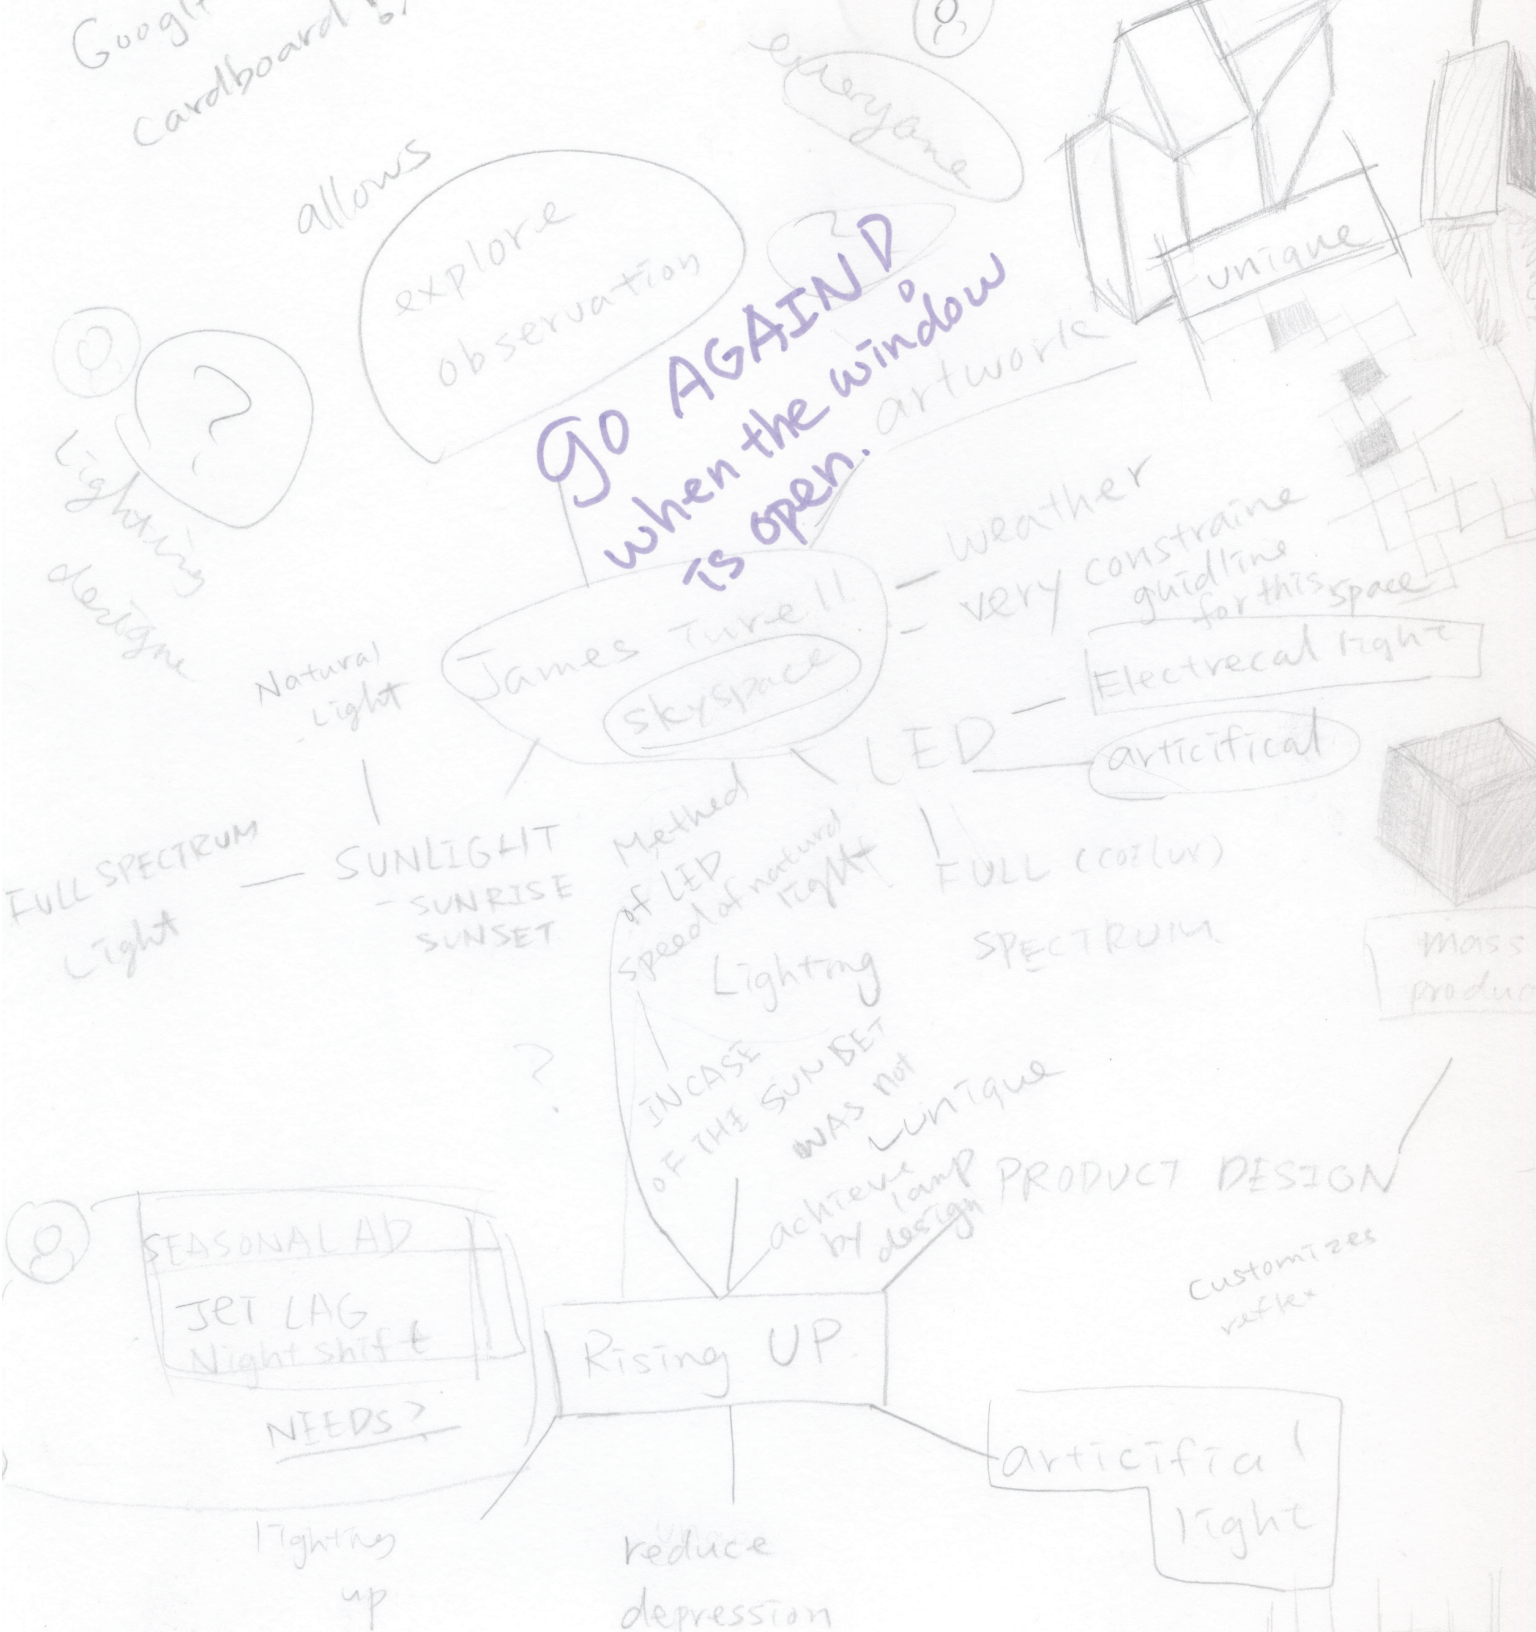 Google
cardboard
allows
everyone
explore
observation
unique
GO AGAIN
when the window
is open.
artwork
Lighting
designe
weather
very constraine
guidline
for this space
James Turell
skyspace
Natural
Light
Electrecal light
LED
articifical
FULL SPECTRUM
Light
SUNLIGHT
- SUNRISE
SUNSET
Method
of LED
speed of natural
light
FULL
SPECTRUM
Lighting
mass
?
INCASE
OF THE SUNSET
WAS not
achieve
by
unique
lamp
design
PRODUCT DESIGN
customizes
reflex
SEASONAL AD
JET LAG
Night shift
NEEDS?
Rising UP
articifial
light
lighting
up
reduce
depression